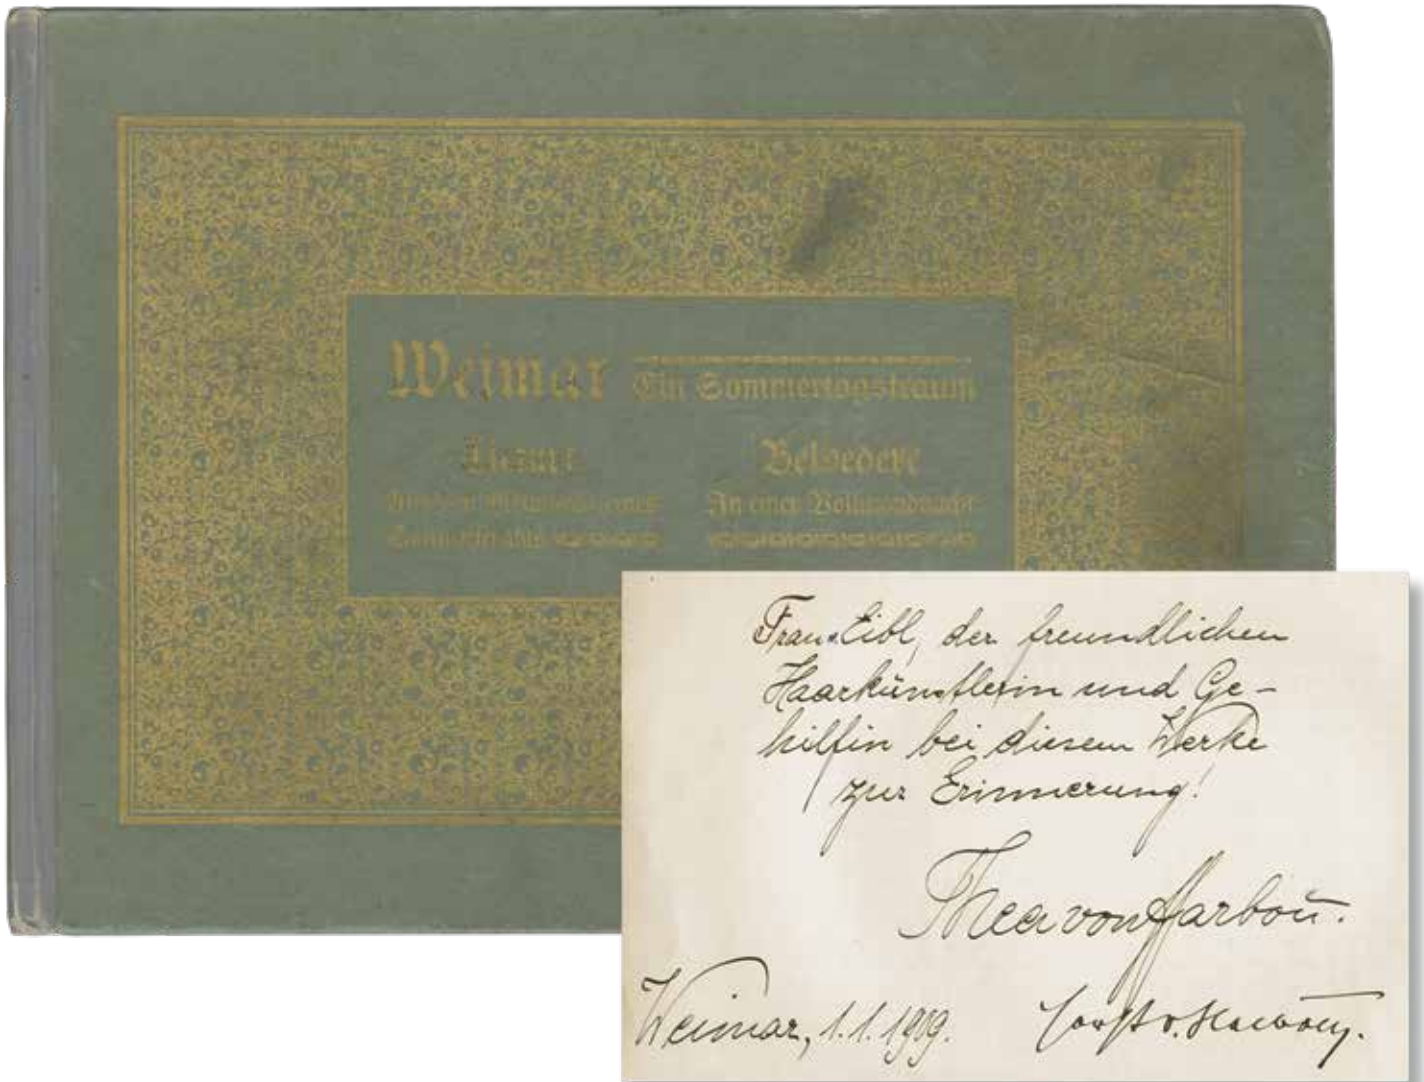 Weimar
Ein Sommertagstraum
Belvedere
In einer Vollmondnacht
Frau Eibl, der freundlichen
Haarkünstlerin und Ge-
hilfin bei diesem Werke
zur Erinnerung!
Thea von Harbou.
Weimar, 1.1.1909.
Horst v. Harbou.